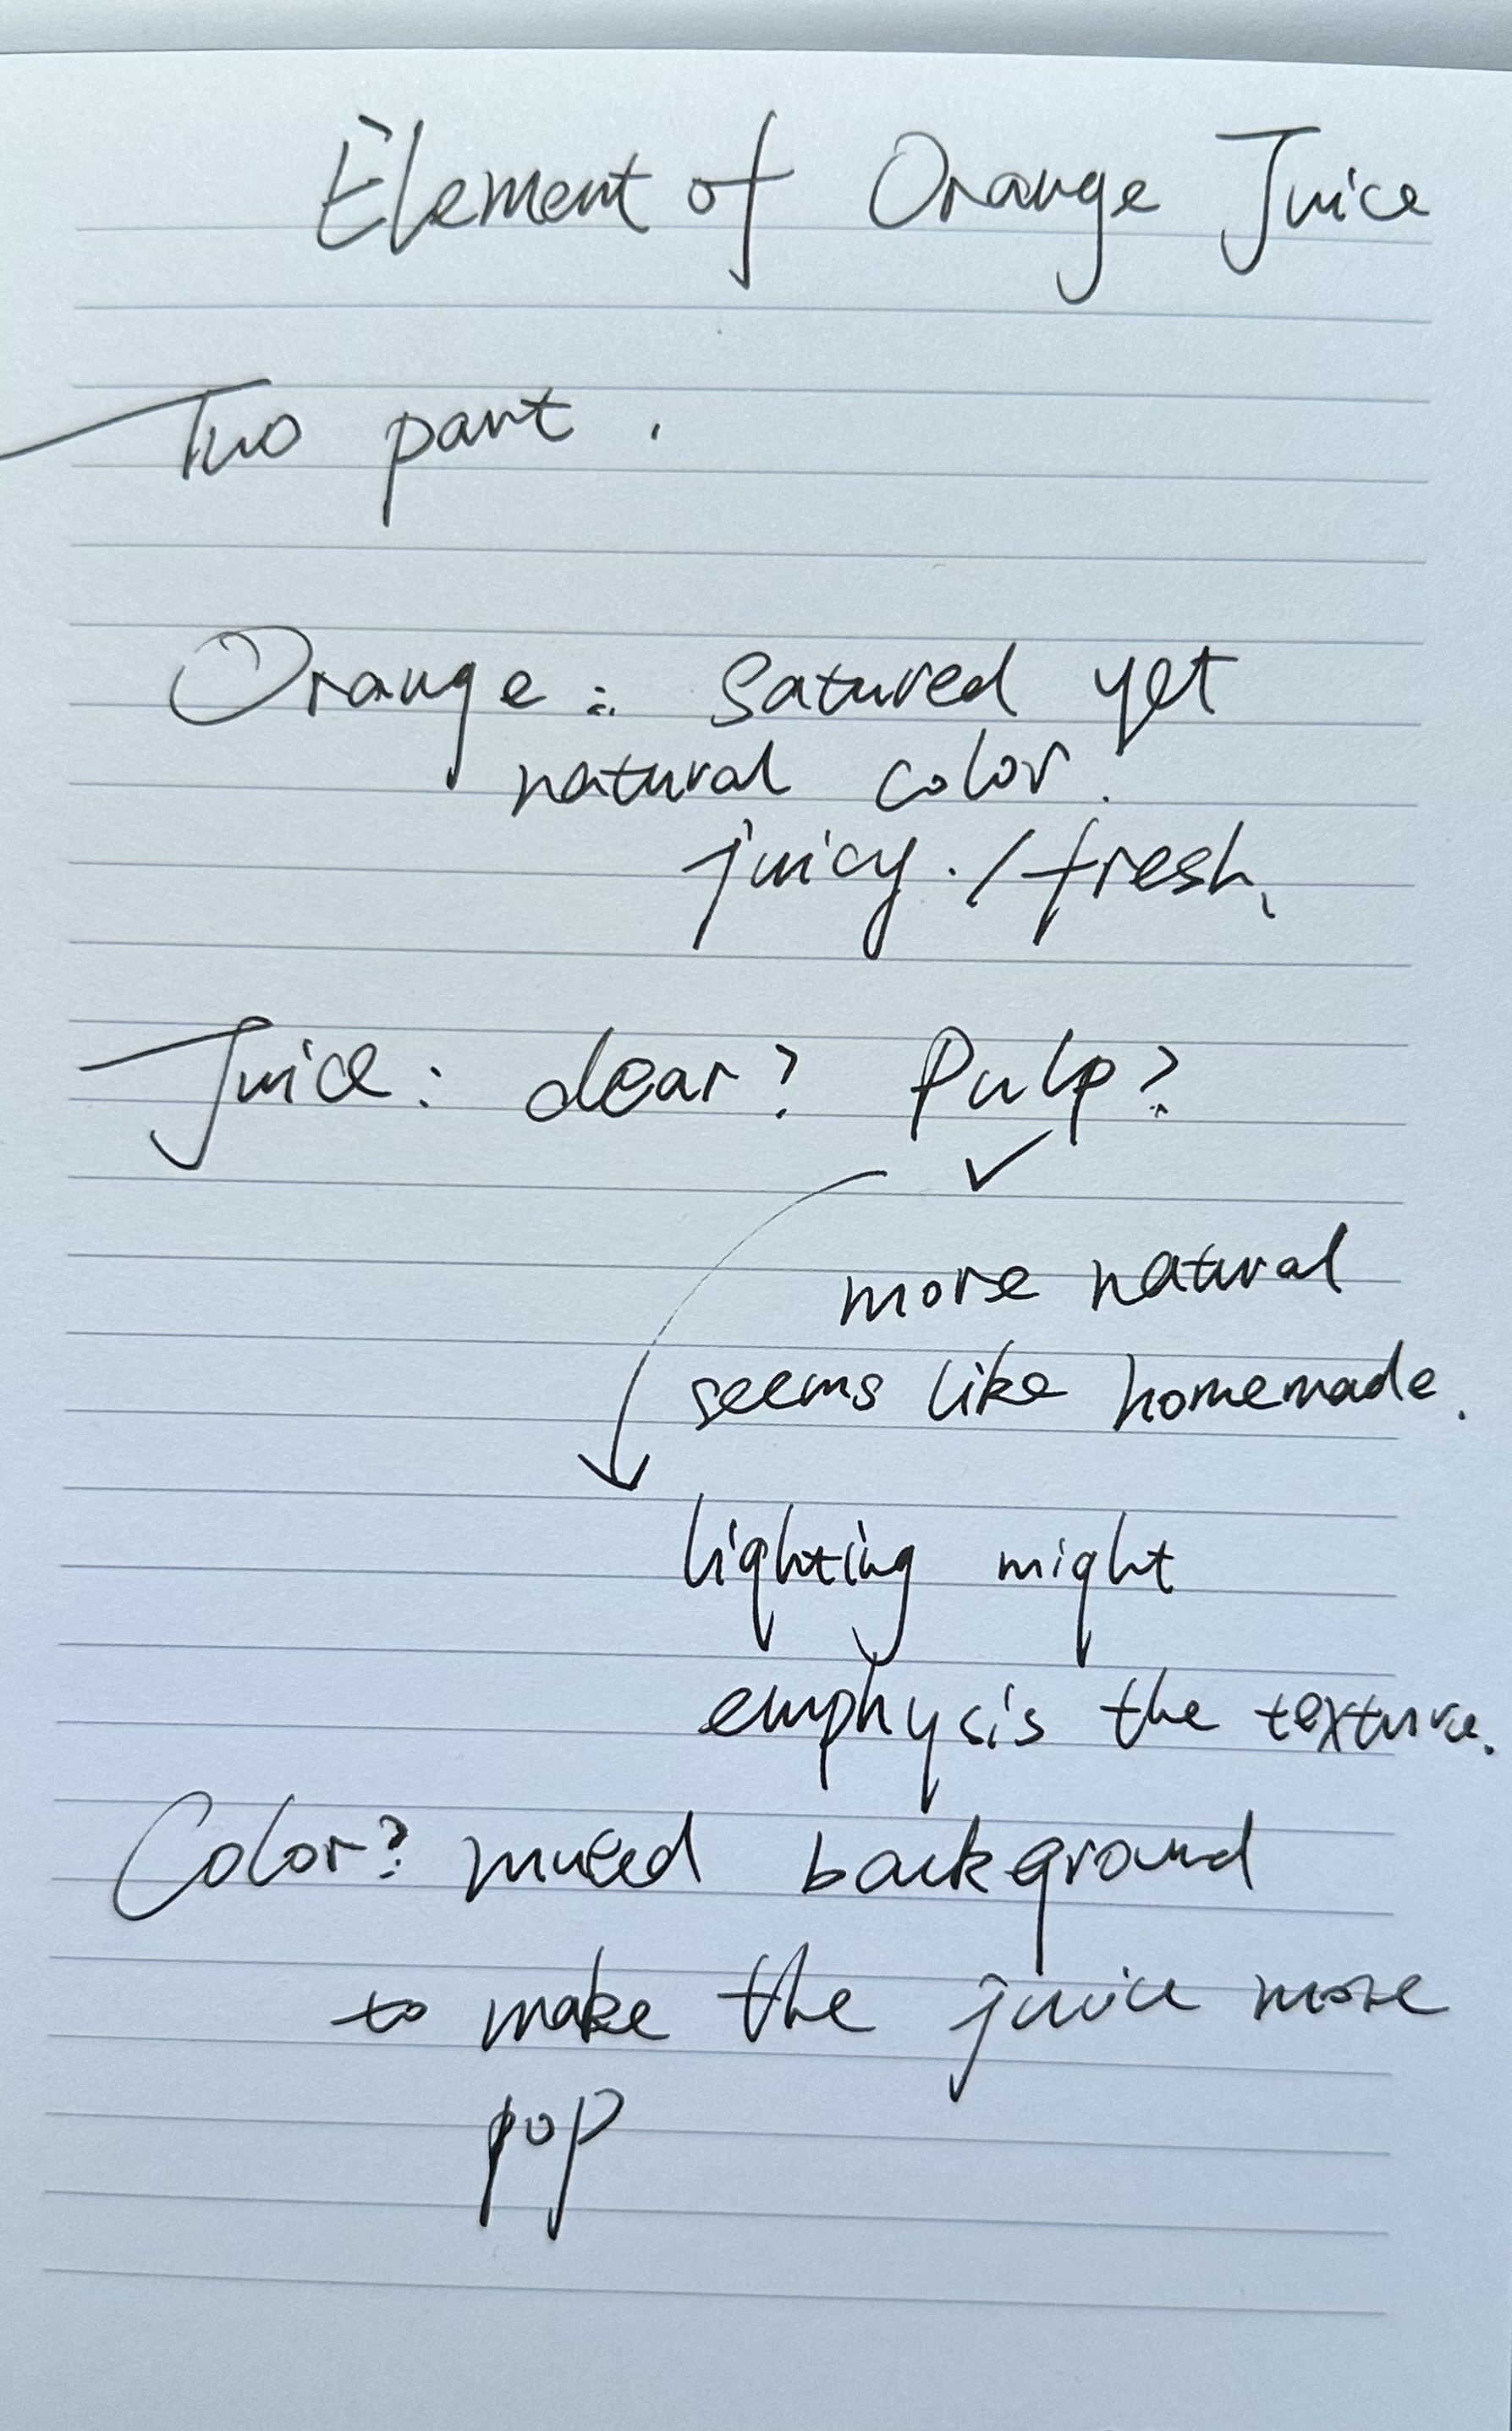 Element of Orange Juice
Two part.
Orange: Satured yet
natural color.
juicy. / fresh.
Juice: clear? Pulp?
✓
more natural
seems like homemade.
lighting might
emphysis the texture.
Color? muted background
to make the juice more
pop